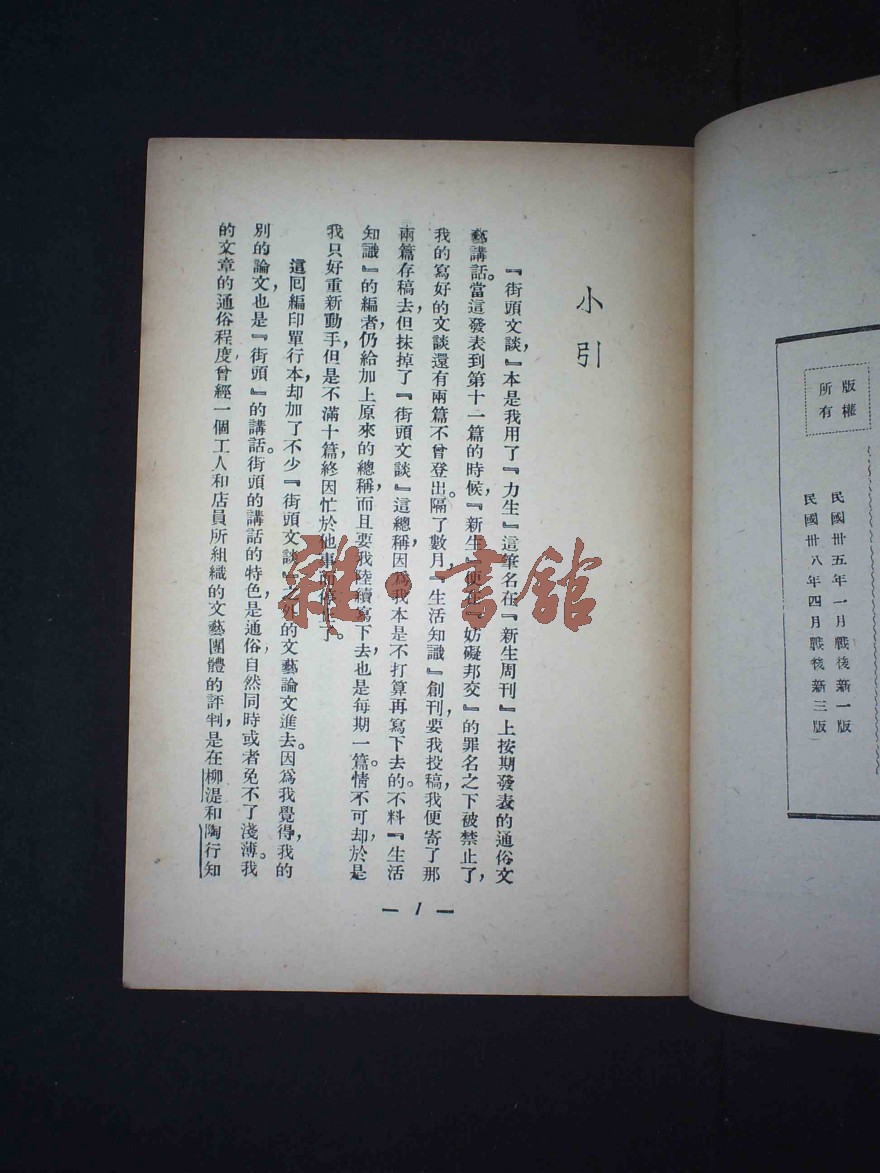 版權
所有
民國卅五年一月戰後新一版
民國卅八年四月戰後新三版
小引
『街頭文談』本是我用了『力生』這筆名在『新生周刊』上按期發表的通俗文
藝講話。當這發表到第十一篇的時候，『新生』便在『妨礙邦交』的罪名之下被禁止了，
我的寫好的文談還有兩篇不曾登出。隔了數月，『生活知識』創刊，要我投稿，我便寄了那
兩篇存稿去，但抹掉了『街頭文談』這總稱，因爲我本是不打算再寫下去的。不料『生活
知識』的編者，仍給加上原來的總稱，而且要我陸續寫下去，也是每期一篇。情不可却，於是
我只好重新動手，但是不滿十篇，終因忙於他事而停止了。
這回編印單行本，却加了不少『街頭文談』之外的文藝論文進去。因爲我覺得，我的
別的論文，也是『街頭』的講話。街頭的講話的特色是通俗，自然同時或者免不了淺薄。我
的文章的通俗程度，曾經一個工人和店員所組織的文藝團體的評判，是在柳湜和陶行知
— 1 —
雜·書館